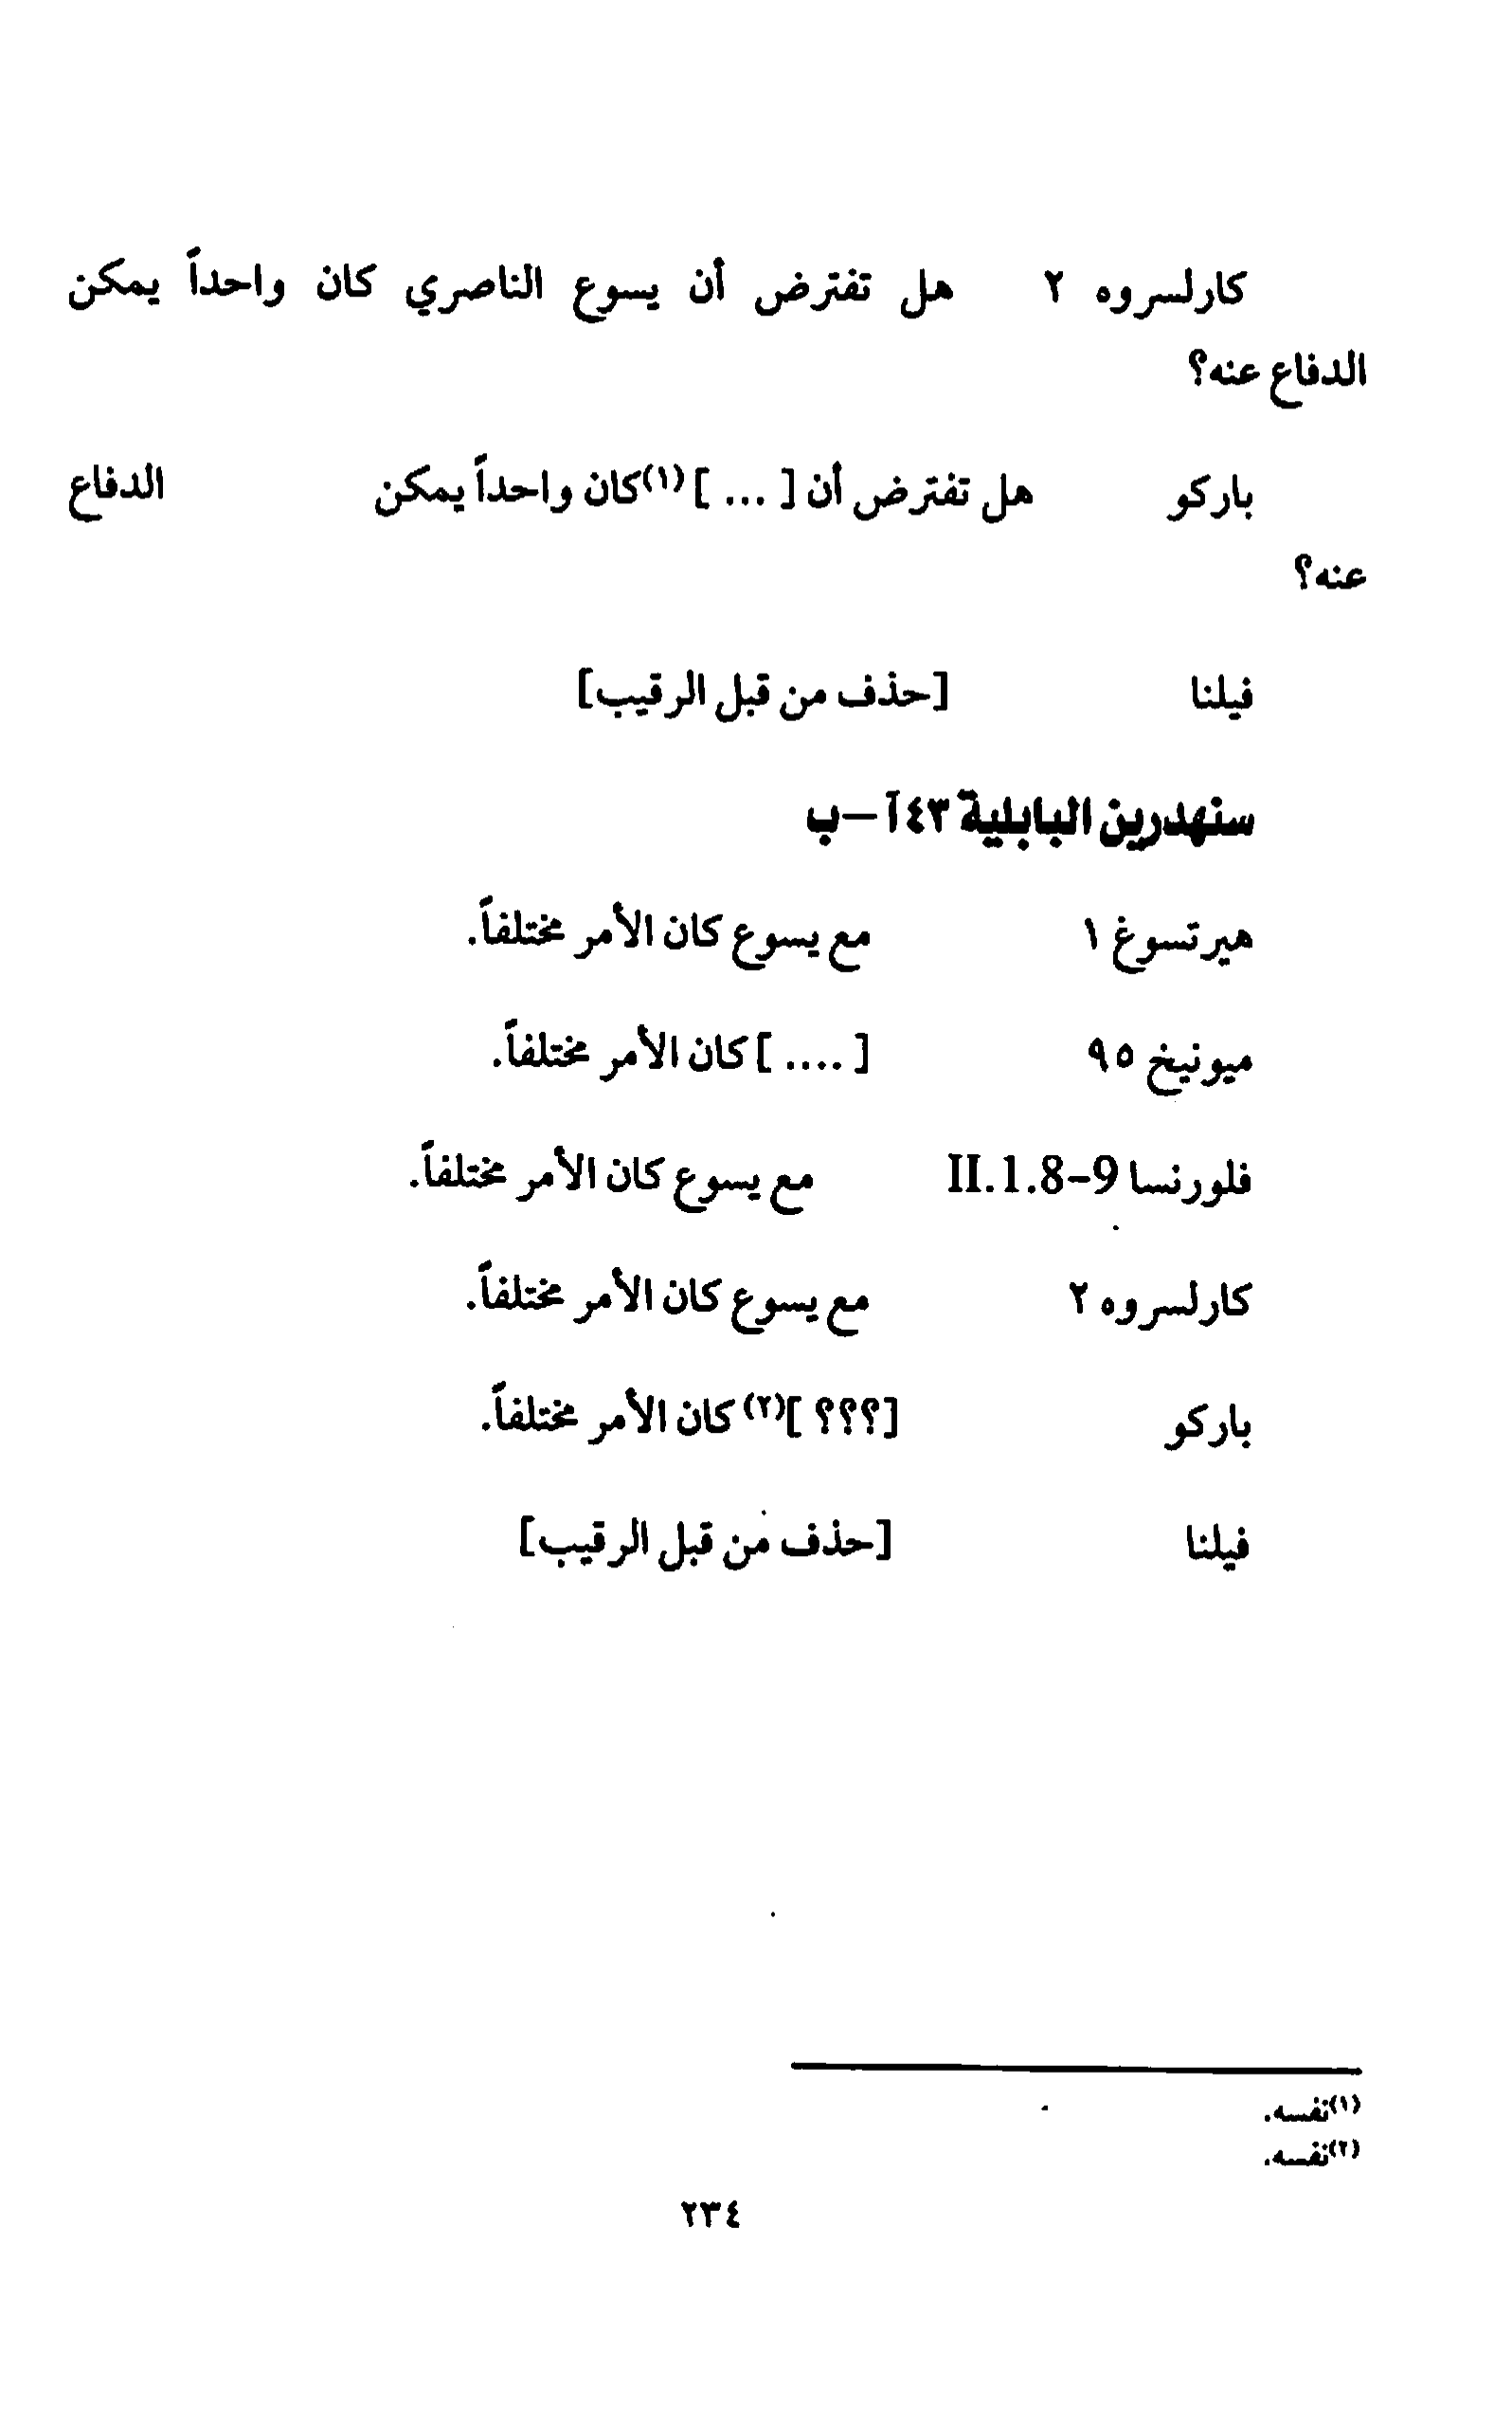 كارلسروه ٢ هل تفترض أن يسوع الناصري كان واحداً يمكن
الدفاع عنه؟
باركو هل تفترض أن [ ... ](١)كان واحداً يمكن الدفاع
عنه؟
فيلنا [حذف من قبل الرقيب]
سنهدرين البابلية ٤٣ آ –ب
هيرتسوغ ١ مع يسوع كان الأمر مختلفاً.
ميونيخ ٩٥ [ .... ] كان الأمر مختلفاً.
فلورنسا II.1.8-9 مع يسوع كان الأمر مختلفاً.
كارلسروه ٢ مع يسوع كان الأمر مختلفاً.
باركو [؟؟؟ ](٢) كان الأمر مختلفاً.
فيلنا [حذف من قبل الرقيب]
(١)نفسه.
(٢)نفسه.
٢٣٤